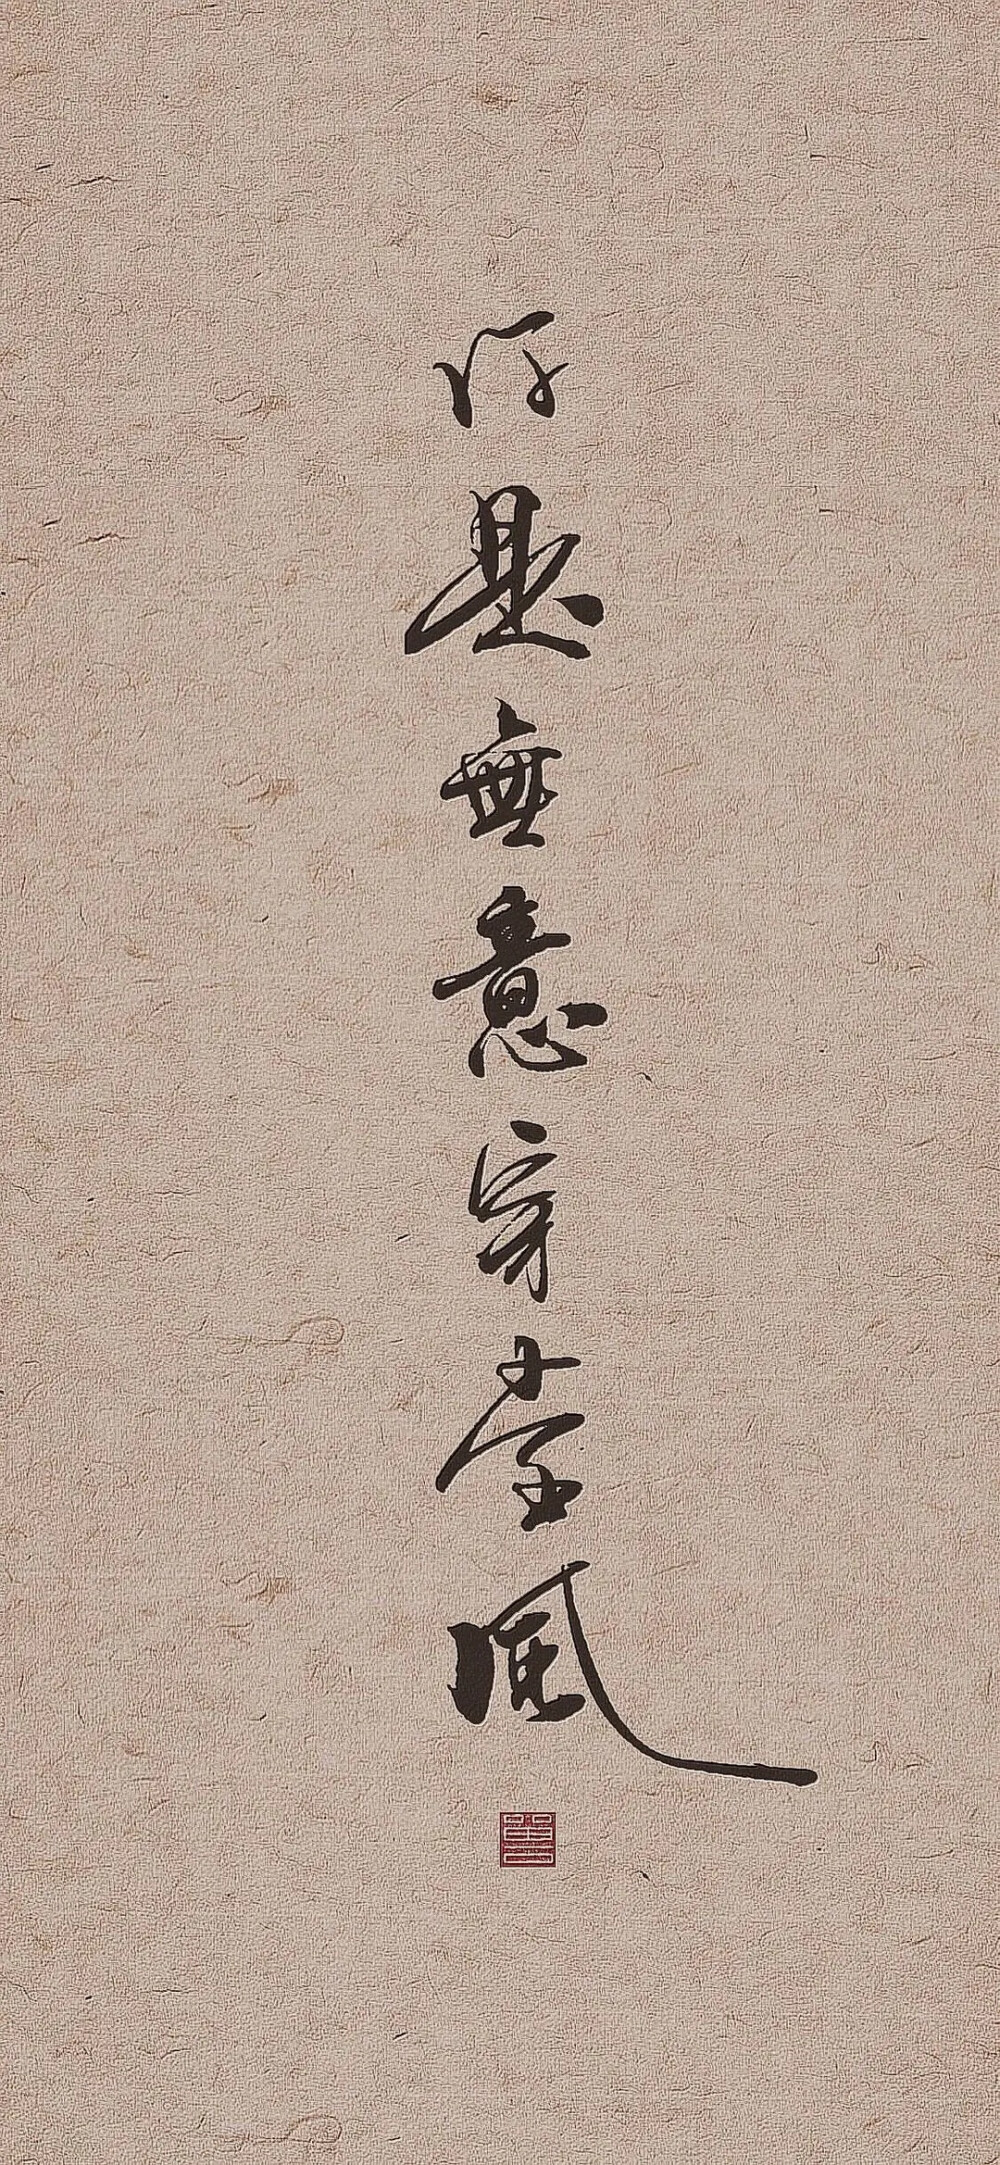 你是無意穿堂風